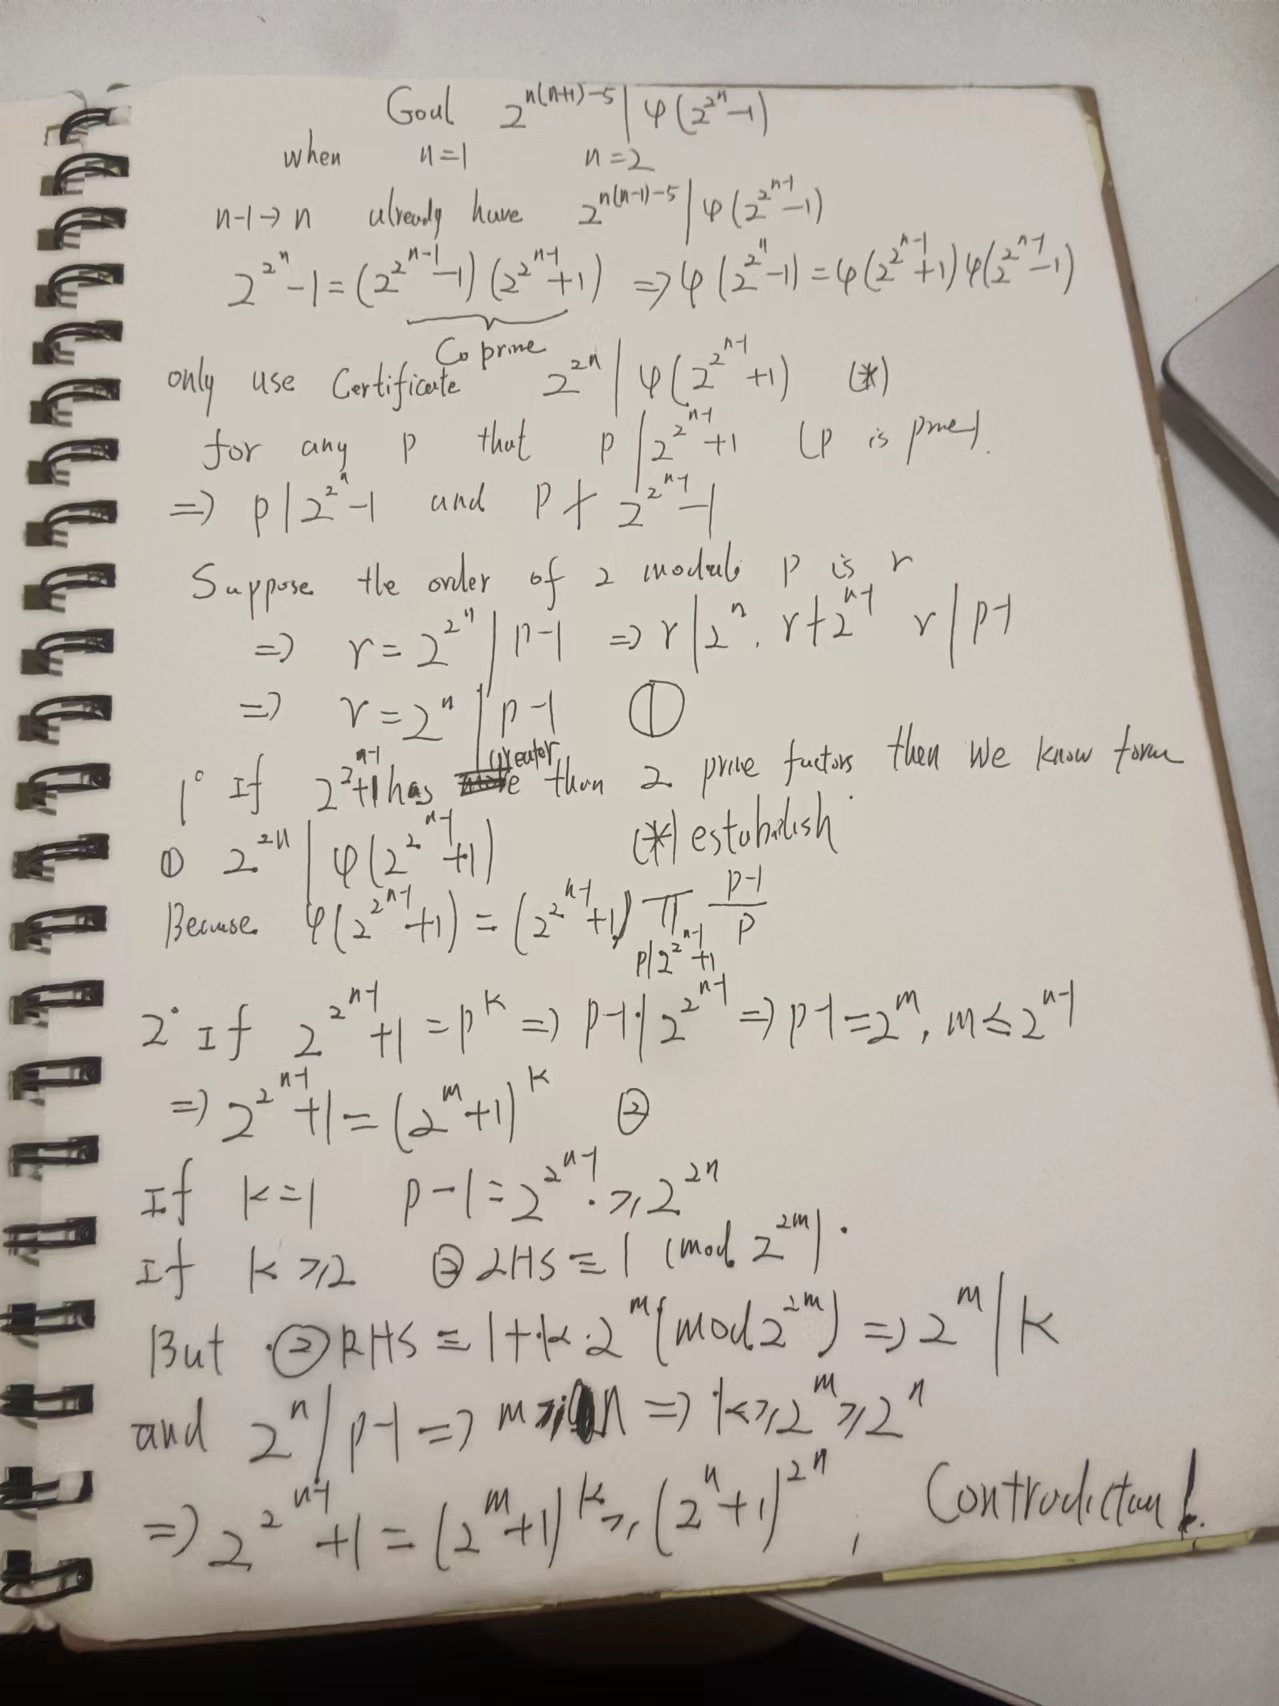 Goal 2^{n(n+1)-5} | φ(2^{2^n}-1)
when n=1 n=2
n-1→n already have 2^{n(n-1)-5} | φ(2^{2^{n-1}}-1)
2^{2^n}-1=(2^{2^{n-1}}-1)(2^{2^{n-1}}+1) ⇒ φ(2^{2^n}-1)=φ(2^{2^{n-1}}+1)φ(2^{2^{n-1}}-1)
Coprime
only use Certificate 2^{2n} | φ(2^{2^{n-1}}+1) (*)
for any p that p | 2^{2^{n-1}}+1 (p is prime).
⇒ p | 2^{2^n}-1 and p ∤ 2^{2^{n-1}}-1
Suppose the order of 2 modulo p is r
⇒ r=2^{2^n} | p-1 ⇒ r | 2^n, r ∤ 2^{n-1} r | p-1
⇒ r=2^n | p-1 ①
1° If 2^{2^{n-1}}+1 has greater than 2 prime factors then we know form
① 2^{2n} | φ(2^{2^{n-1}}+1) (*) estabilish.
Because φ(2^{2^{n-1}}+1) = (2^{2^{n-1}}+1) ∏_{p|2^{2^{n-1}}+1} \frac{p-1}{p}
2° If 2^{2^{n-1}}+1=p^k ⇒ p-1 | 2^{2^{n-1}} ⇒ p-1=2^m, m≤2^{n-1}
⇒ 2^{2^{n-1}}+1=(2^m+1)^k ②
If k=1 p-1=2^{2^{n-1}} ≥ 2^{2n}
If k≥2 ② LHS ≡ 1 (mod 2^{2m}).
But ② RHS ≡ 1+k·2^m (mod 2^{2m}) ⇒ 2^m | k
and 2^n | p-1 ⇒ m≥n ⇒ k≥2^m≥2^n
⇒ 2^{2^{n-1}}+1=(2^m+1)^k ≥ (2^n+1)^{2^n}, Contradiction!